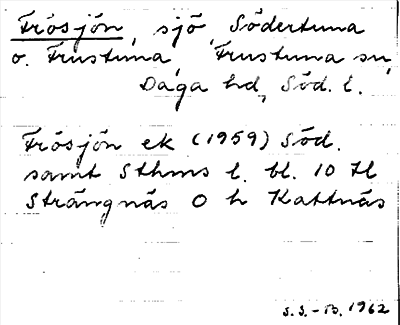 Frösjön, sjö, Södertuna
o. Frustuna, Frustuna sn,
Daga hd, Söd. l.
Frösjön ek (1959) Söd.
samt Sthms l. bl. 10 Hl
Strängnäs O h Kattnäs
S.S.-B. 1962